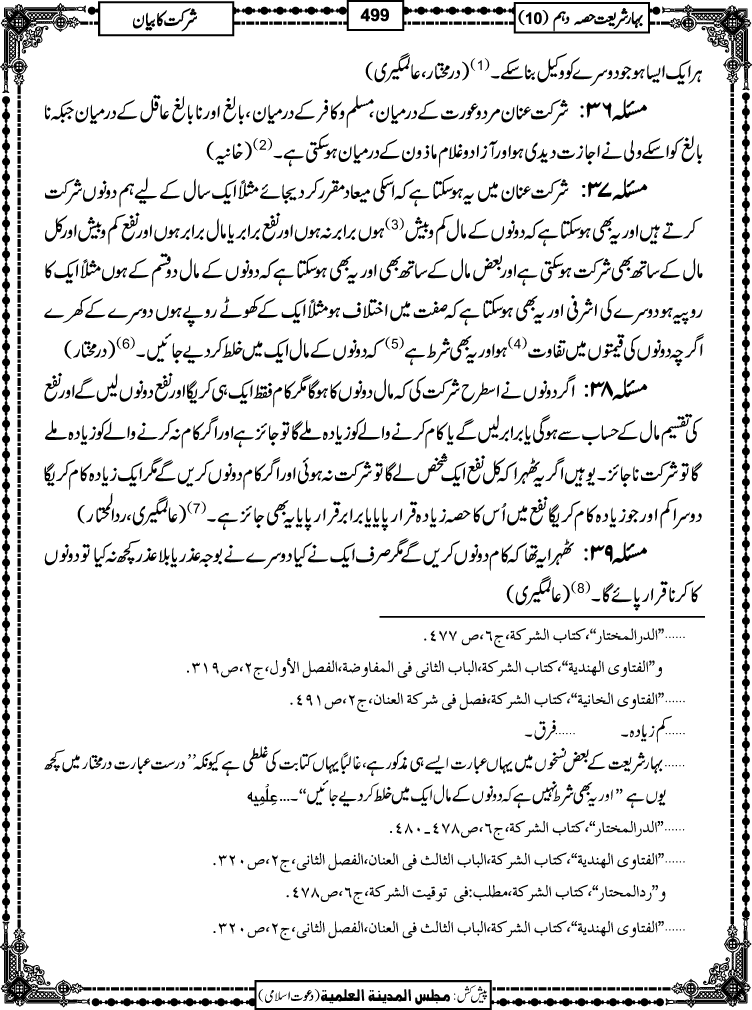 بہار شریعت حصہ دہم (10)
499
شرکت کا بیان
ہر ایک ایسا ہو جو دوسرے کو وکیل بنا سکے۔(1) (درمختار، عالمگیری)
مسئلہ ۳۶: شرکت عنان مرد و عورت کے درمیان، مسلم و کافر کے درمیان، بالغ اور نابالغ عاقل کے درمیان جبکہ نا
بالغ کو اسکے ولی نے اجازت دیدی ہو اور آزاد و غلام ماذون کے درمیان ہوسکتی ہے۔(2) (خانیہ)
مسئلہ ۳۷: شرکت عنان میں یہ ہوسکتا ہے کہ اسکی میعاد مقرر کردیجائے مثلاً ایک سال کے لیے ہم دونوں شرکت
کرتے ہیں اور یہ بھی ہوسکتا ہے کہ دونوں کے مال کم و بیش(3) ہوں برابر نہ ہوں اور نفع برابر یا مال برابر ہوں اور نفع کم و بیش اور کل
مال کے ساتھ بھی شرکت ہوسکتی ہے اور بعض مال کے ساتھ بھی اور یہ بھی ہوسکتا ہے کہ دونوں کے مال دو قسم کے ہوں مثلاً ایک کا
روپیہ ہو دوسرے کی اشرفی اور یہ بھی ہوسکتا ہے کہ صفت میں اختلاف ہو مثلاً ایک کے کھوٹے روپے ہوں دوسرے کے کھرے
اگرچہ دونوں کی قیمتوں میں تفاوت(4) ہو اور یہ بھی شرط ہے(5) کہ دونوں کے مال ایک میں خلط کردیے جائیں۔(6) (درمختار)
مسئلہ ۳۸: اگر دونوں نے اسطرح شرکت کی کہ مال دونوں کا ہوگا مگر کام فقط ایک ہی کریگا اور نفع دونوں لیں گے اور نفع
کی تقسیم مال کے حساب سے ہوگی یا برابر لیں گے یا کام کرنے والے کو زیادہ ملے گا تو جائز ہے اور اگر کام نہ کرنے والے کو زیادہ ملے
گا تو شرکت ناجائز۔ یوہیں اگر یہ ٹھہرا کہ کل نفع ایک شخص لے گا تو شرکت نہ ہوئی اور اگر کام دونوں کریں گے مگر ایک زیادہ کام کریگا
دوسرا کم اور جو زیادہ کام کریگا نفع میں اُس کا حصہ زیادہ قرار پایا یا برابر قرار پایا یہ بھی جائز ہے۔(7) (عالمگیری، ردالمحتار)
مسئلہ ۳۹: ٹھہرا یہ تھا کہ کام دونوں کریں گے مگر صرف ایک نے کیا دوسرے نے بوجہ عذر یا بلا عذر کچھ نہ کیا تو دونوں
کا کرنا قرار پائے گا۔(8) (عالمگیری)
......”الدرالمختار“، کتاب الشرکة، ج٦، ص ٤٧٧.
و”الفتاوی الھندیة“، کتاب الشرکة، الباب الثانی فی المفاوضة، الفصل الأول، ج٢، ص٣١٩.
......”الفتاوی الخانیة“، کتاب الشرکة، فصل فی شرکة العنان، ج٢، ص٤٩١.
......کم زیادہ۔ ......فرق۔
......بہار شریعت کے بعض نسخوں میں یہاں عبارت ایسے ہی مذکور ہے، غالباً یہاں کتابت کی غلطی ہے کیونکہ” درست عبارت درمختار میں کچھ
یوں ہے ” اور یہ بھی شرط نہیں ہے کہ دونوں کے مال ایک میں خلط کردیے جائیں“۔...عِلْمِیه
......”الدرالمختار“، کتاب الشرکة، ج٦، ص٤٧٨۔٤٨٠.
......”الفتاوی الھندیة“، کتاب الشرکة، الباب الثالث فی العنان، الفصل الثانی، ج٢، ص٣٢٠.
و”ردالمحتار“، کتاب الشرکة، مطلب: فی توقیت الشرکة، ج٦، ص٤٧٨.
......”الفتاوی الھندیة“، کتاب الشرکة، الباب الثالث فی العنان، الفصل الثانی، ج٢، ص٣٢٠.
پیش کش: مجلس المدینة العلمیة (دعوت اسلامی)